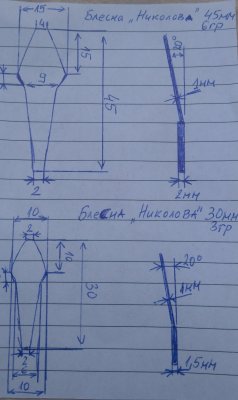 Блесна „Николова" 45мм
6гр
15
4
15
9
45
20°
1мм
2
2мм
Блесна „Николова" 30мм
3гр
10
2
10
30
20°
1мм
2
6
10
1,5мм